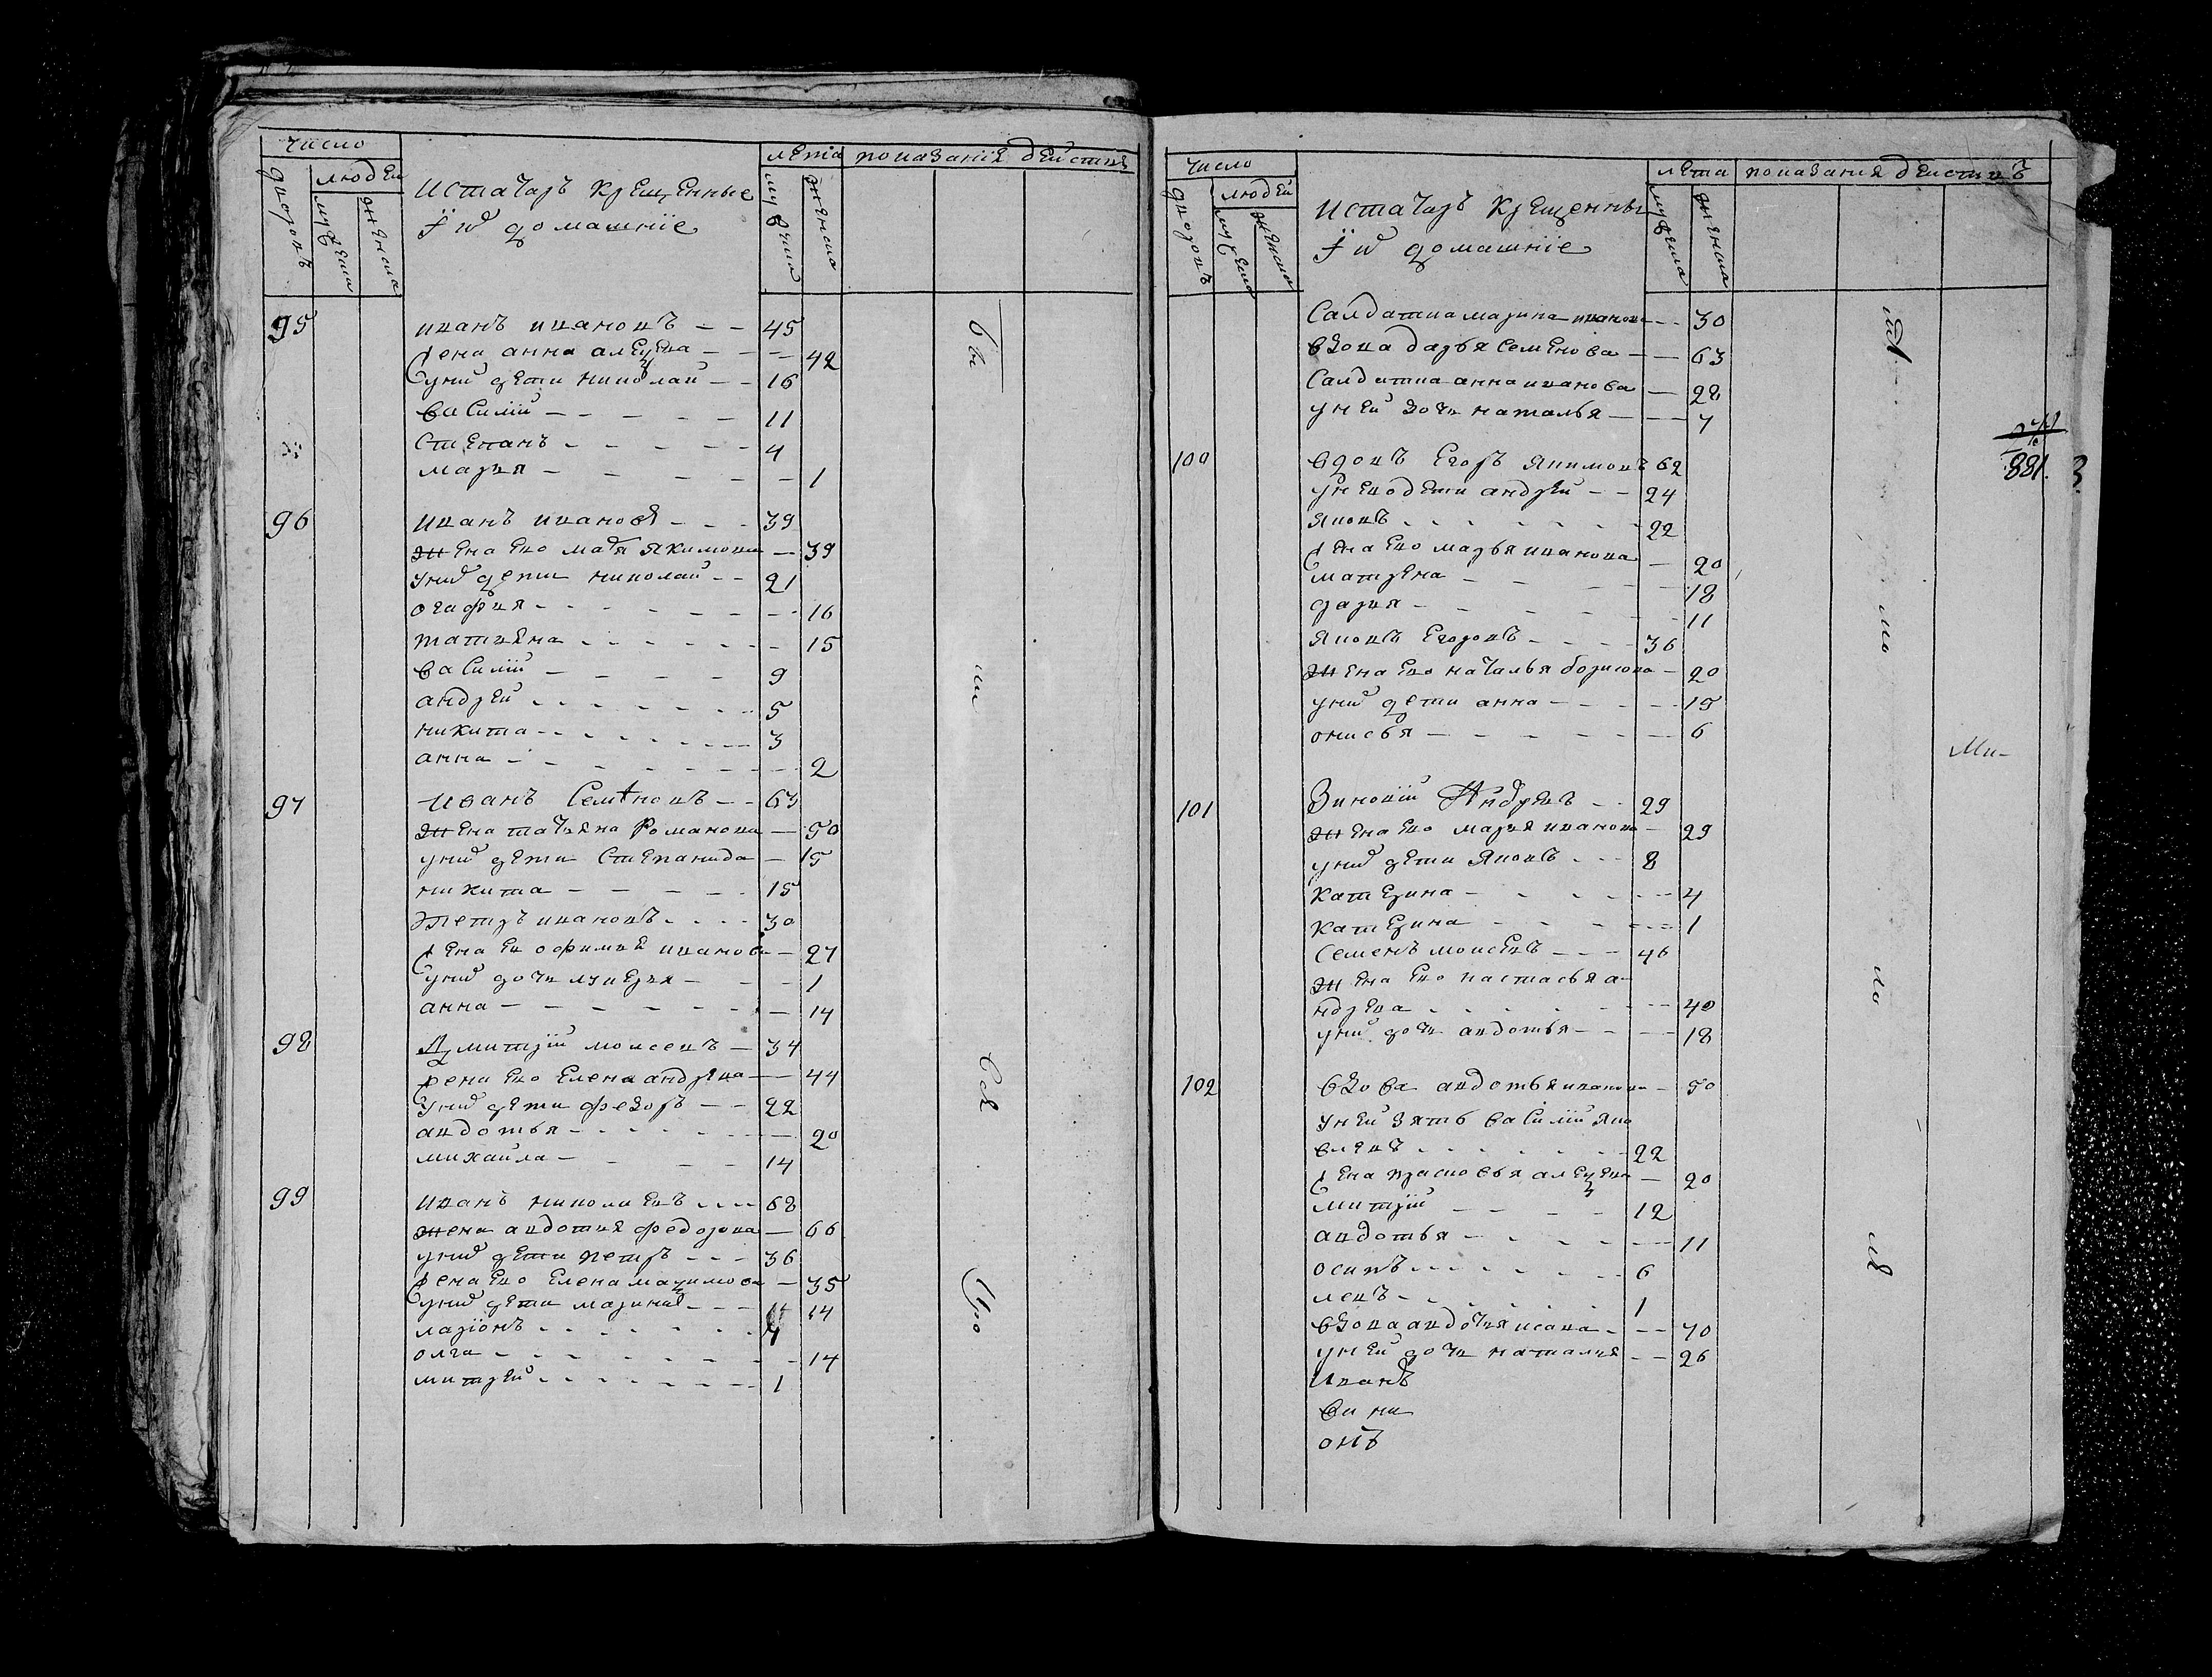 число
людей
дворовъ
мужеска
женска
Истатаръ крещенные
и ихъ домашніе
лета
мужеска
женска
показаніе действъ
95 иванъ ивановъ 45
жена анна алеѯева 42
у нихъ дети николай 16
василій 11
степанъ 4
марья 1
96 иванъ ивановъ 39
жена ево марья якимова 39
у нихъ дети николай 21
огафия 16
татияна 15
василій 9
андрей 5
никита 3
анна 2
97 иванъ семеновъ 63
жена татьяна романова 50
у нихъ дети степанида 15
никита 15
петръ ивановъ 30
жена ево офимия иванова 27
у нихъ дочь лукерья 1
анна 14
98 Дмитрій моисеевъ 34
жена ево елена андреева 44
у нихъ дети федоръ 22
авдотья 20
михайла 14
99 иванъ николаевъ 68
жена авдотия федорова 66
у нихъ дети петръ 36
жена ево елена маѯимова 35
у нихъ дети марина 14
ларіонъ
олга 14
митрей 1
бы
ли
всѣ
число
людей
дворовъ
мужеска
женска
Истатаръ крещенны
и ихъ домашніе
лета
мужеска
женска
показания действъ
Салдатка марина иванова 30
вдова дарья семенова 63
Салдатка анна иванова 28
у ней дочь наталья 7
100 вдовъ егоръ якимовъ 62
у нево дети андрей 24
яковъ 22
жена ево марья иванова 20
матрена 18
дария 11
яковъ егоровъ 36
жена ево наталья борисова 20
у нихъ дети анна 15
онисья 6
101 Зиновій Андреевъ 29
жена ево мария иванова 29
у нихъ дети яковъ 8
катерина 4
катерина 1
семенъ моисеевъ 46
жена ево настасья а
ндреева 40
у нихъ дочь авдотья 18
102 вдова авдотья иванова 50
у ней зять василій яко
влевъ 22
жена прасковья алеѯеева 20
митрій 12
авдотья 11
осипъ 6
левъ 1
вдова авдотья исаева 70
у ней дочь наталия 26
Иванъ
881
Ми-